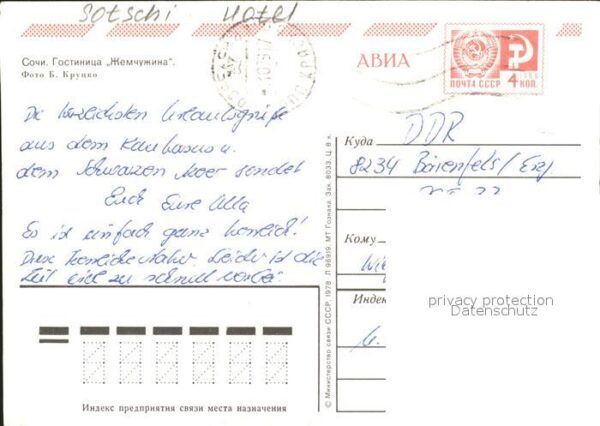 Sotschi Hotel
Сочи. Гостиница „Жемчужина“.
Фото Б. Круцко
АВИА
ПОЧТА СССР 4 КОП.
Die herzlichsten Urlaubsgrüße
aus dem Kaukasus u.
dem Schwarzen Meer sendet
Euch Eure Ulla
Es ist einfach ganz herrlich!
Diese herrliche Natur. Leider ist die
Zeit viel zu schnell vorbei.
Куда DDR
8234 Bärenfels/Erzg.
Кому
Индекс
privacy protection
Datenschutz
Индекс предприятия связи места назначения
© Министерство связи СССР, 1978 Л 96919. МТ Гознака. Зак. 8033. Ц. 8 к.